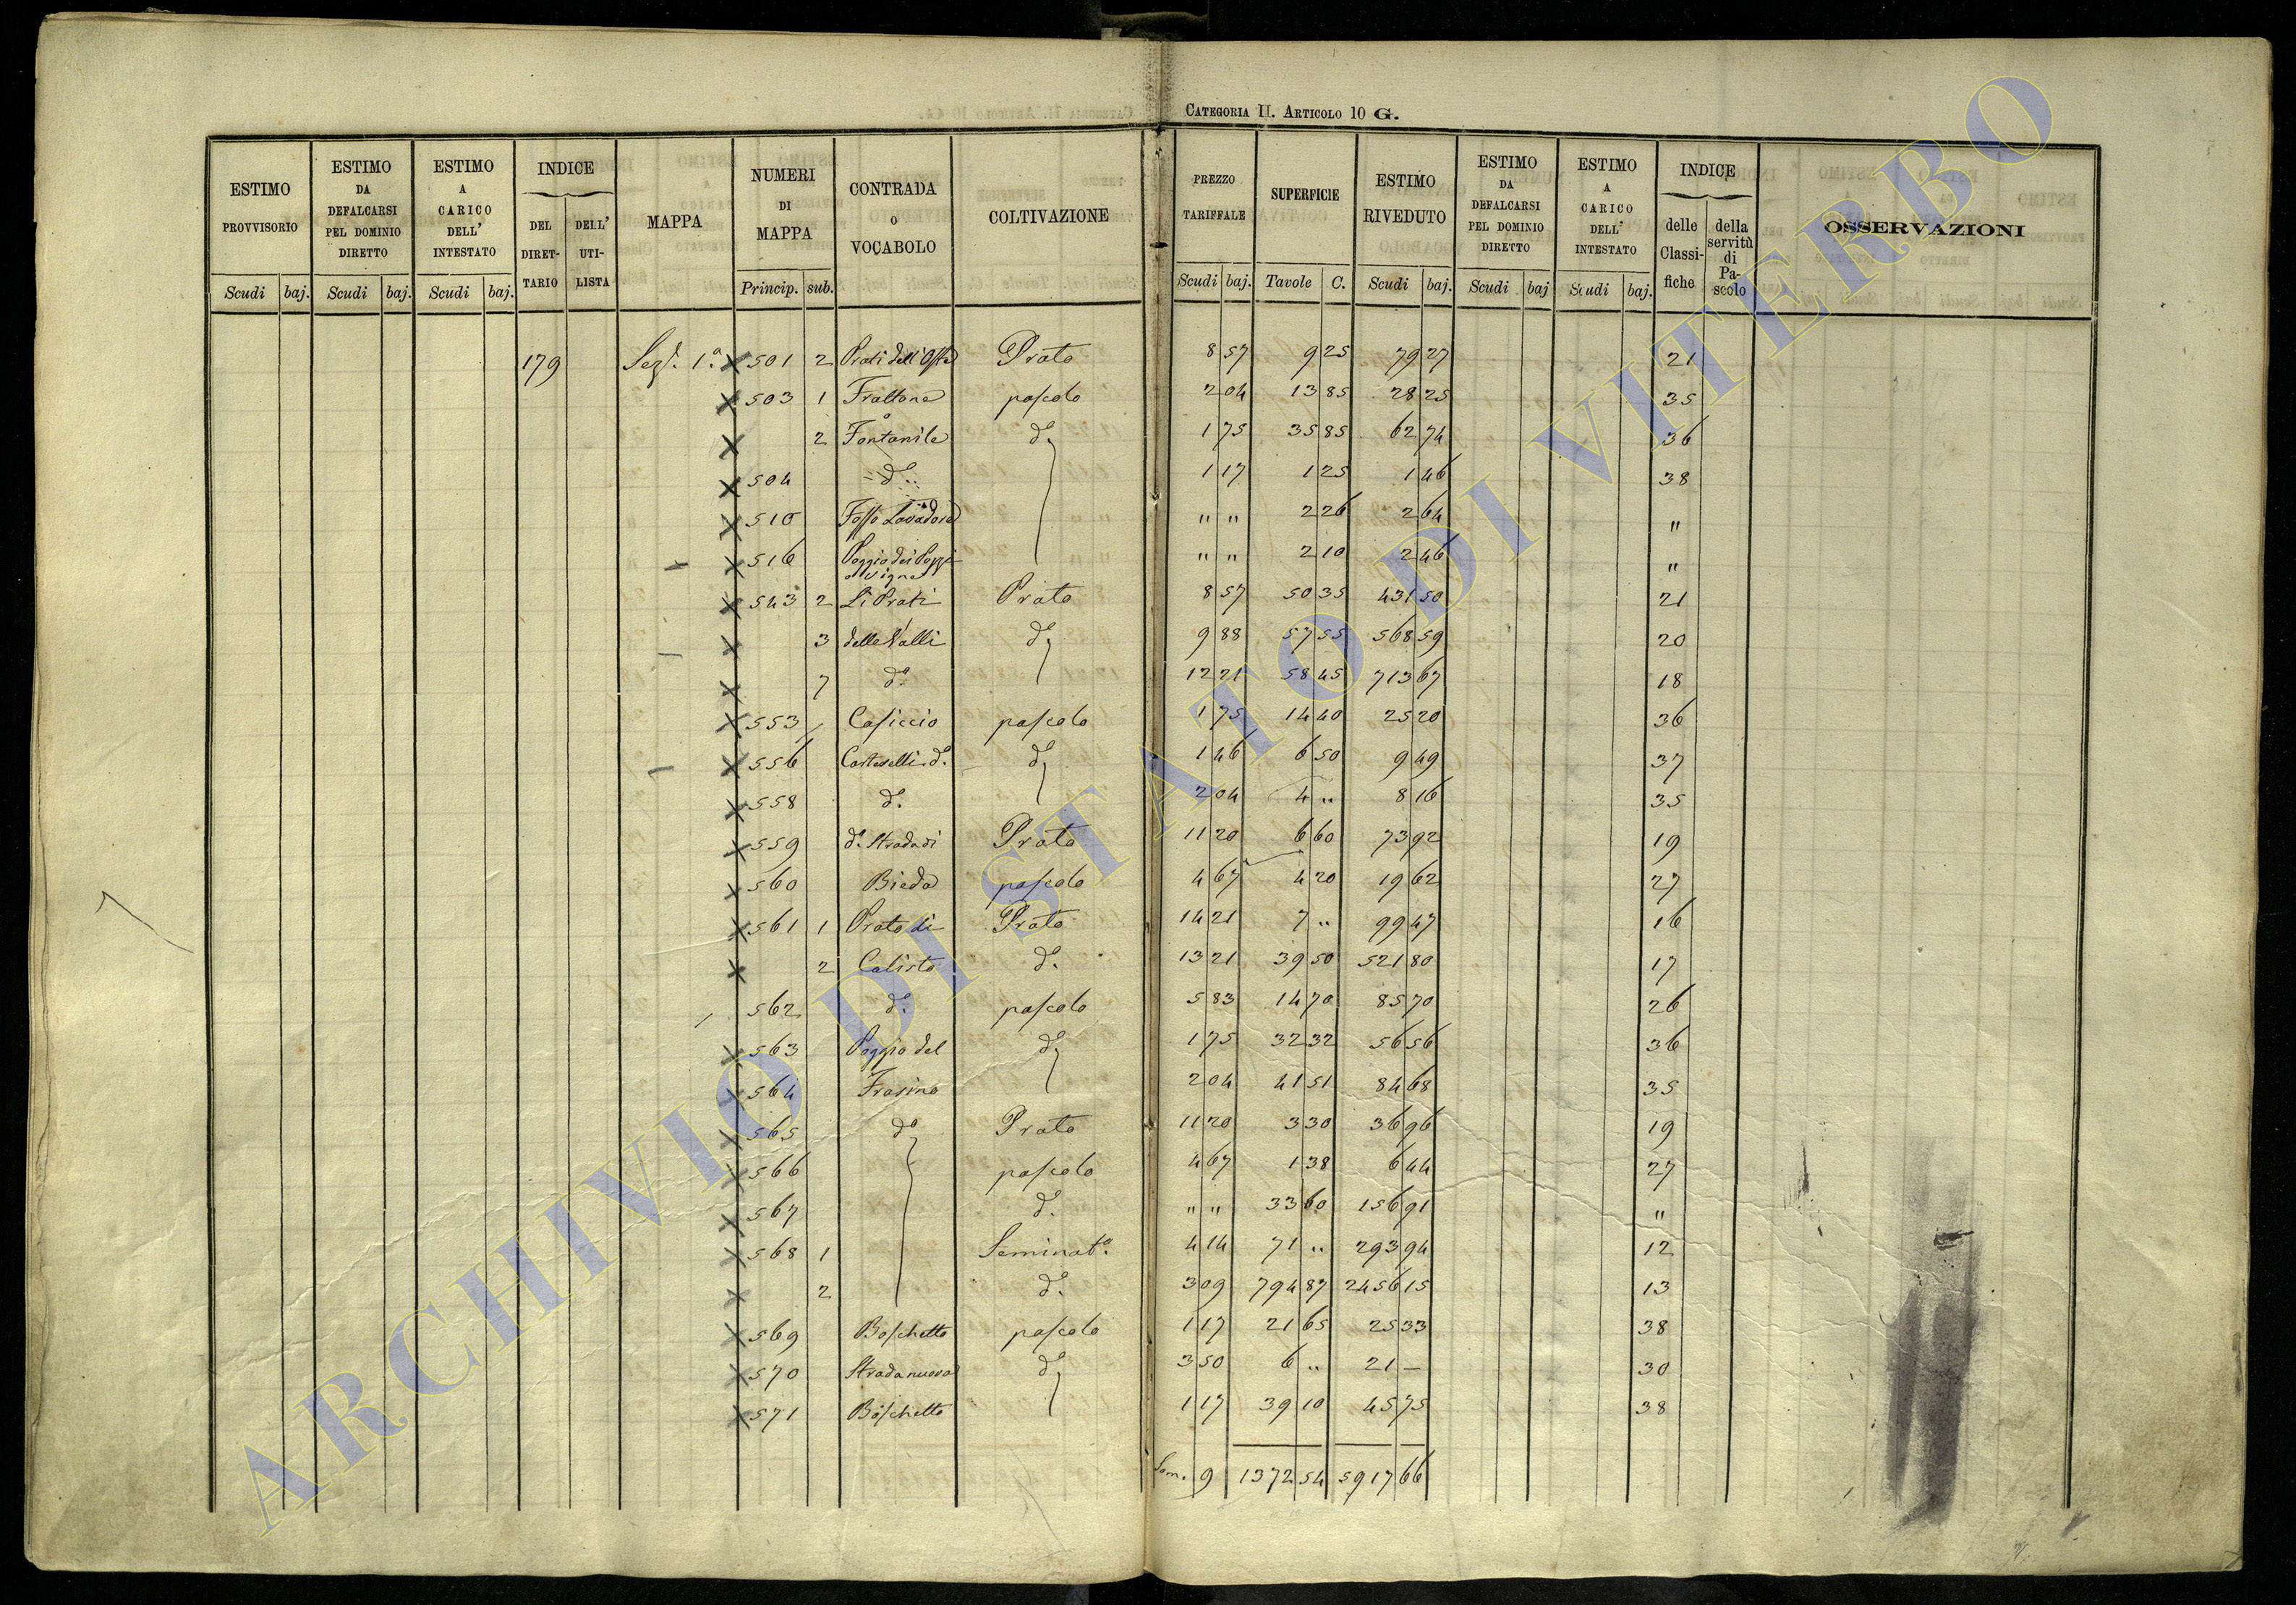 CATEGORIA II. ARTICOLO 10 G.
ESTIMO PROVVISORIO | ESTIMO DA DEFALCARSI PEL DOMINIO DIRETTO | ESTIMO A CARICO DELL' INTESTATO | INDICE | MAPPA | NUMERI DI MAPPA | CONTRADA O VOCABOLO | COLTIVAZIONE | PREZZO TARIFFALE | SUPERFICIE | ESTIMO RIVEDUTO | ESTIMO DA DEFALCARSI PEL DOMINIO DIRETTO | ESTIMO A CARICO DELL' INTESTATO | INDICE | OSSERVAZIONI
DEL DIRET-TARIO | DELL' UTI-LISTA | delle Classi-fiche | della servitù di Pa-scolo
Scudi | baj. | Scudi | baj. | Scudi | baj. | Princip. | sub. | Scudi | baj. | Tavole | C. | Scudi | baj. | Scudi | baj | Scudi | baj.
179 | Seze. 1a. | X 501 | 2 | Prati dell'Oste | Prato | 8 57 | 9 25 | 79 27 | 21
X 503 | 1 | Frattone | pascolo | 2 04 | 13 85 | 28 25 | 35
X | 2 | Fontanile | do. | 1 75 | 35 85 | 62 74 | 36
X 504 | do. | 1 17 | 1 25 | 1 46 | 38
X 510 | Fosso Lavadore | " " | 2 26 | 2 64 | "
X 516 | Poggio dei Pozzi
o Vigne | " " | 2 10 | 2 46 | "
X 543 | 2 | Li Prati | Prato | 8 57 | 50 35 | 431 50 | 21
X | 3 | delle Valli | do. | 9 88 | 57 55 | 568 59 | 20
X | 7 | do. | 12 21 | 58 45 | 713 67 | 18
X 553 | Casiccio | pascolo | 1 75 | 14 40 | 25 20 | 36
X 556 | Casteselli do. | do. | 1 46 | 6 50 | 9 49 | 37
X 558 | do. | 2 04 | 4 " | 8 16 | 35
X 559 | do. Strada di | Prato | 11 20 | 6 60 | 73 92 | 19
X 560 | Bieda | pascolo | 4 67 | 4 20 | 19 62 | 27
X 561 | 1 | Prato di | Prato | 14 21 | 7 " | 99 47 | 16
X | 2 | Calisto | do. | 13 21 | 39 50 | 521 80 | 17
562 | do. | pascolo | 5 83 | 14 70 | 85 70 | 26
X 563 | Poggio del | do. | 1 75 | 32 32 | 56 56 | 36
X 564 | Frasino | 2 04 | 41 51 | 84 68 | 35
X 565 | do. | Prato | 11 20 | 3 30 | 36 96 | 19
X 566 | pascolo | 4 67 | 1 38 | 6 44 | 27
X 567 | do. | " " | 33 60 | 156 91 | "
X 568 | 1 | Seminato. | 4 14 | 71 " | 293 94 | 12
X | 2 | do. | 3 09 | 794 87 | 2456 15 | 13
X 569 | Boschetto | pascolo | 1 17 | 21 65 | 25 33 | 38
X 570 | Strada nuova | do. | 3 50 | 6 " | 21 — | 30
X 571 | Boschetto | 1 17 | 39 10 | 45 75 | 38
Som. 9 | 1372 54 | 5917 66
ARCHIVIO DI STATO DI VITERBO